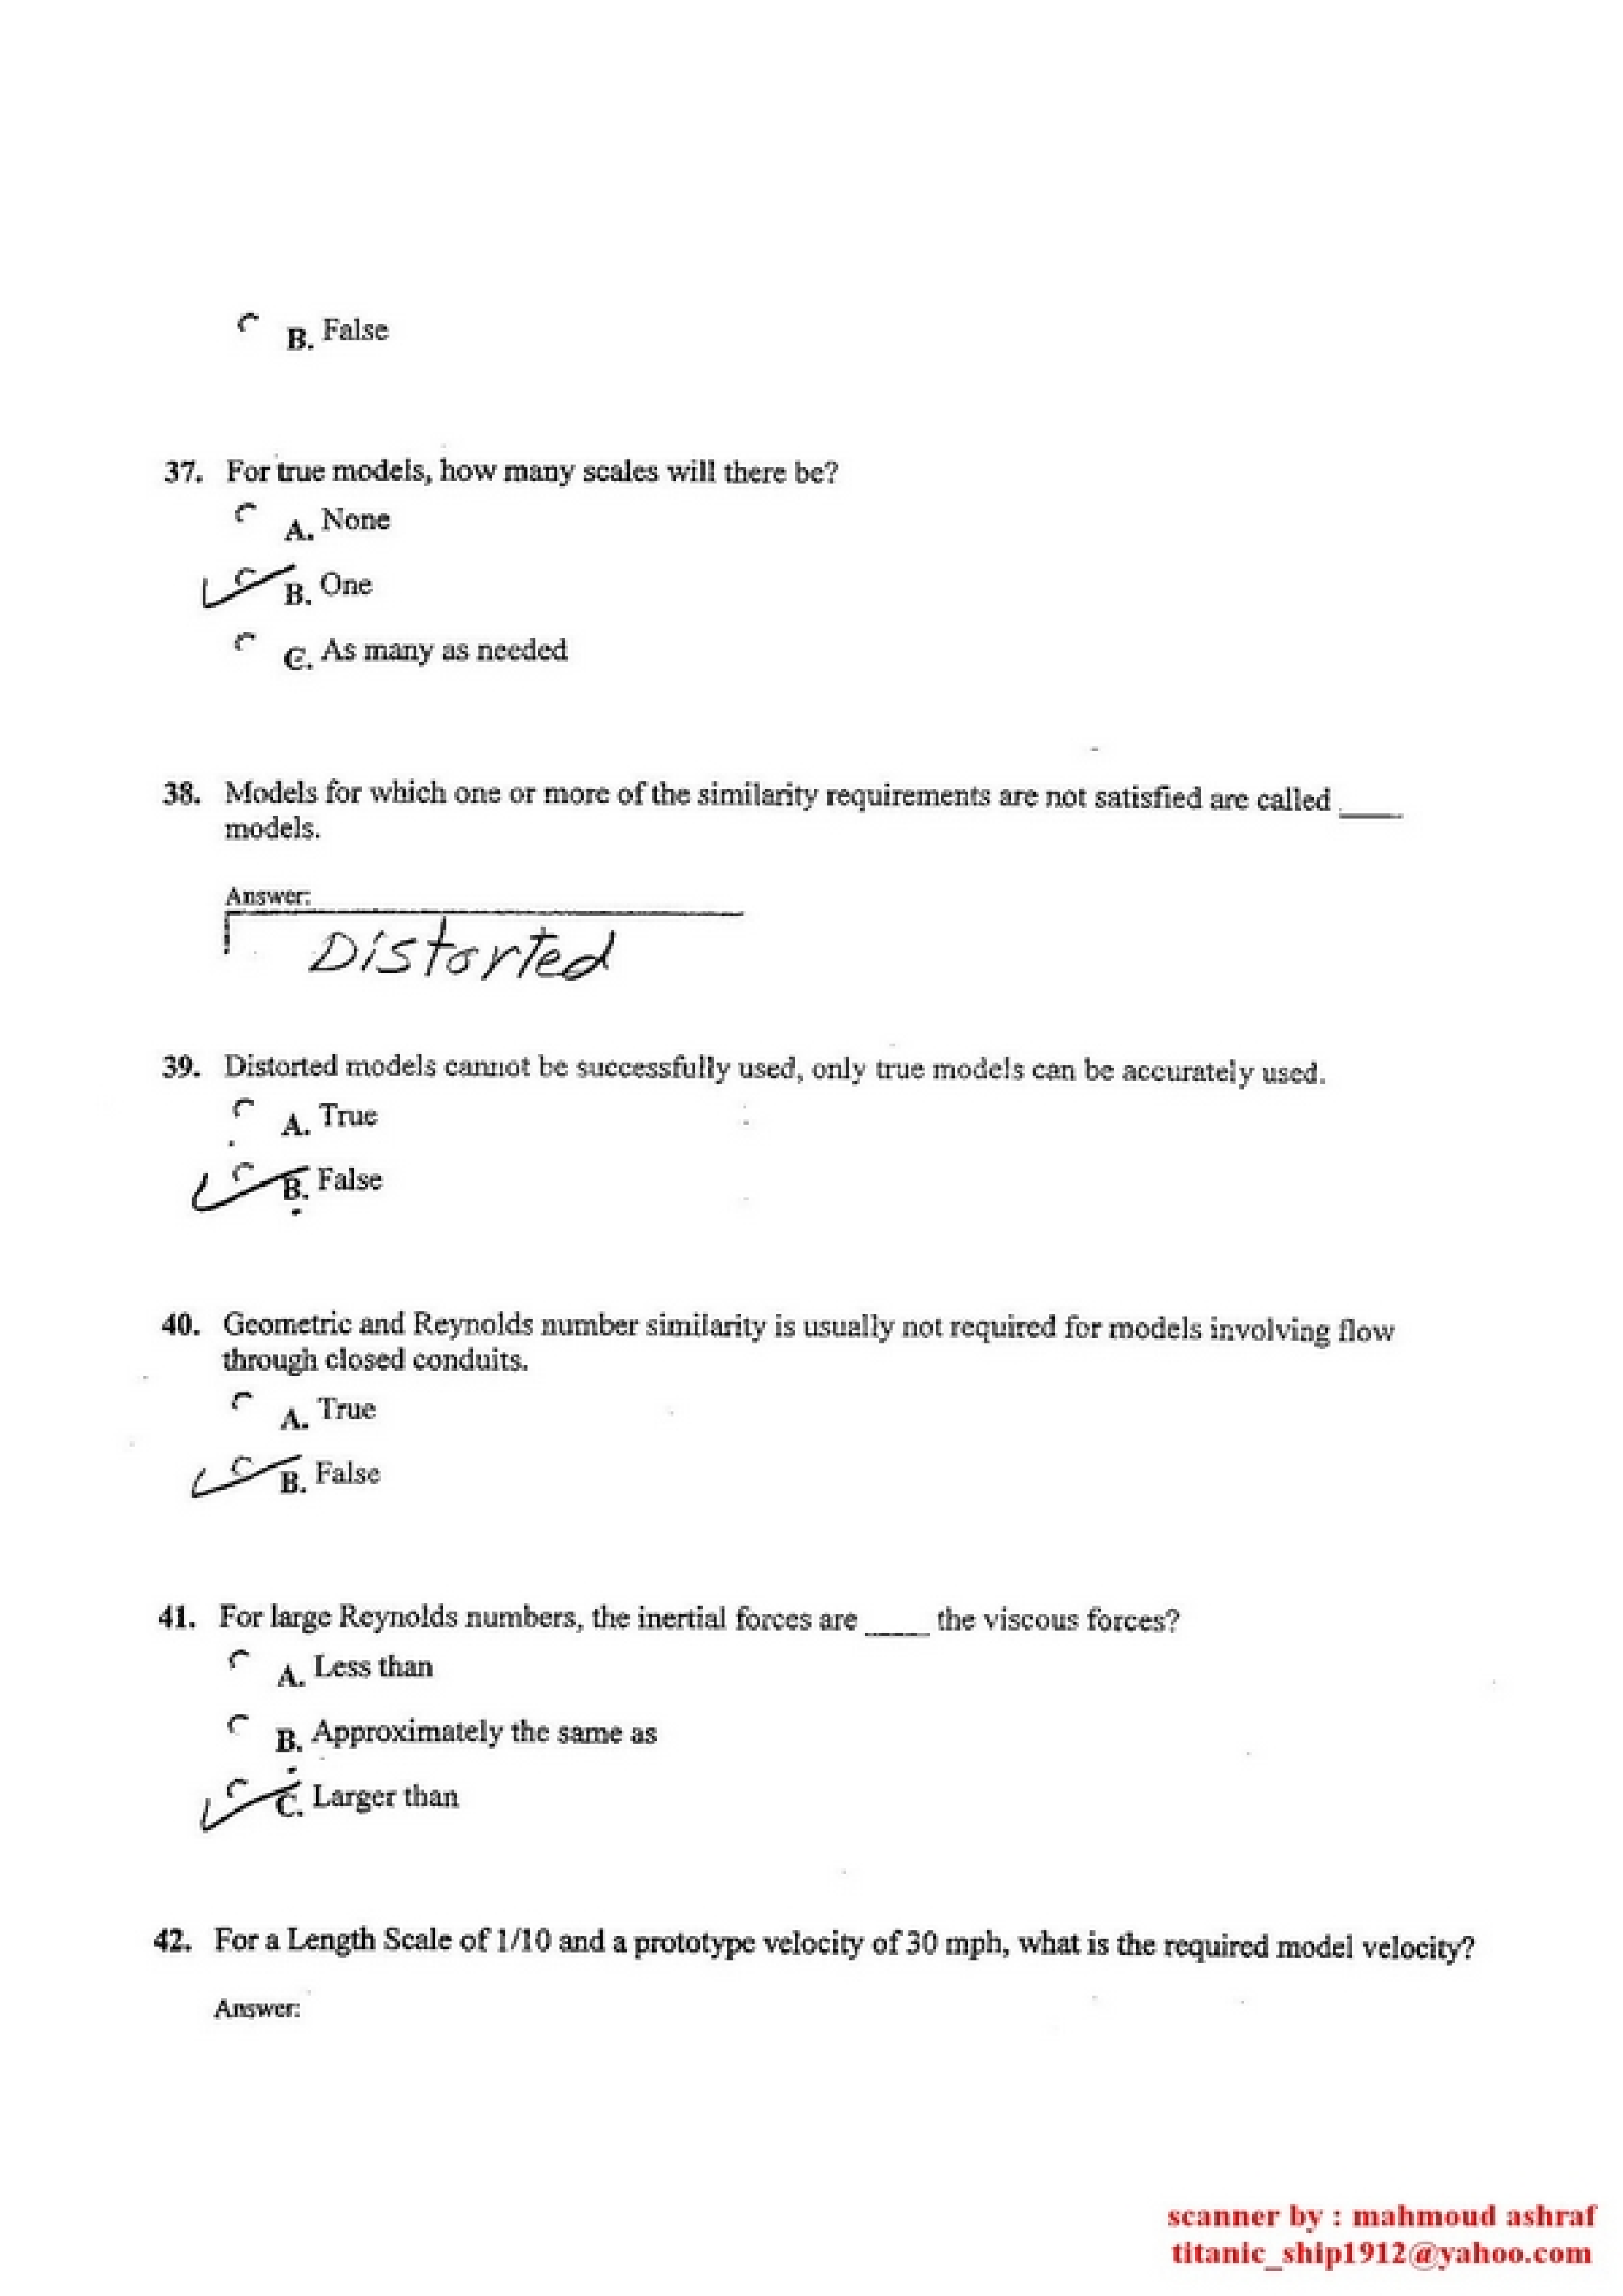 B. False
37. For true models, how many scales will there be?
A. None
B. One
C. As many as needed
38. Models for which one or more of the similarity requirements are not satisfied are called ____
models.
Answer:
Distorted
39. Distorted models cannot be successfully used, only true models can be accurately used.
A. True
B. False
40. Geometric and Reynolds number similarity is usually not required for models involving flow
through closed conduits.
A. True
B. False
41. For large Reynolds numbers, the inertial forces are ____ the viscous forces?
A. Less than
B. Approximately the same as
C. Larger than
42. For a Length Scale of 1/10 and a prototype velocity of 30 mph, what is the required model velocity?
Answer:
scanner by : mahmoud ashraf
titanic_ship1912@yahoo.com